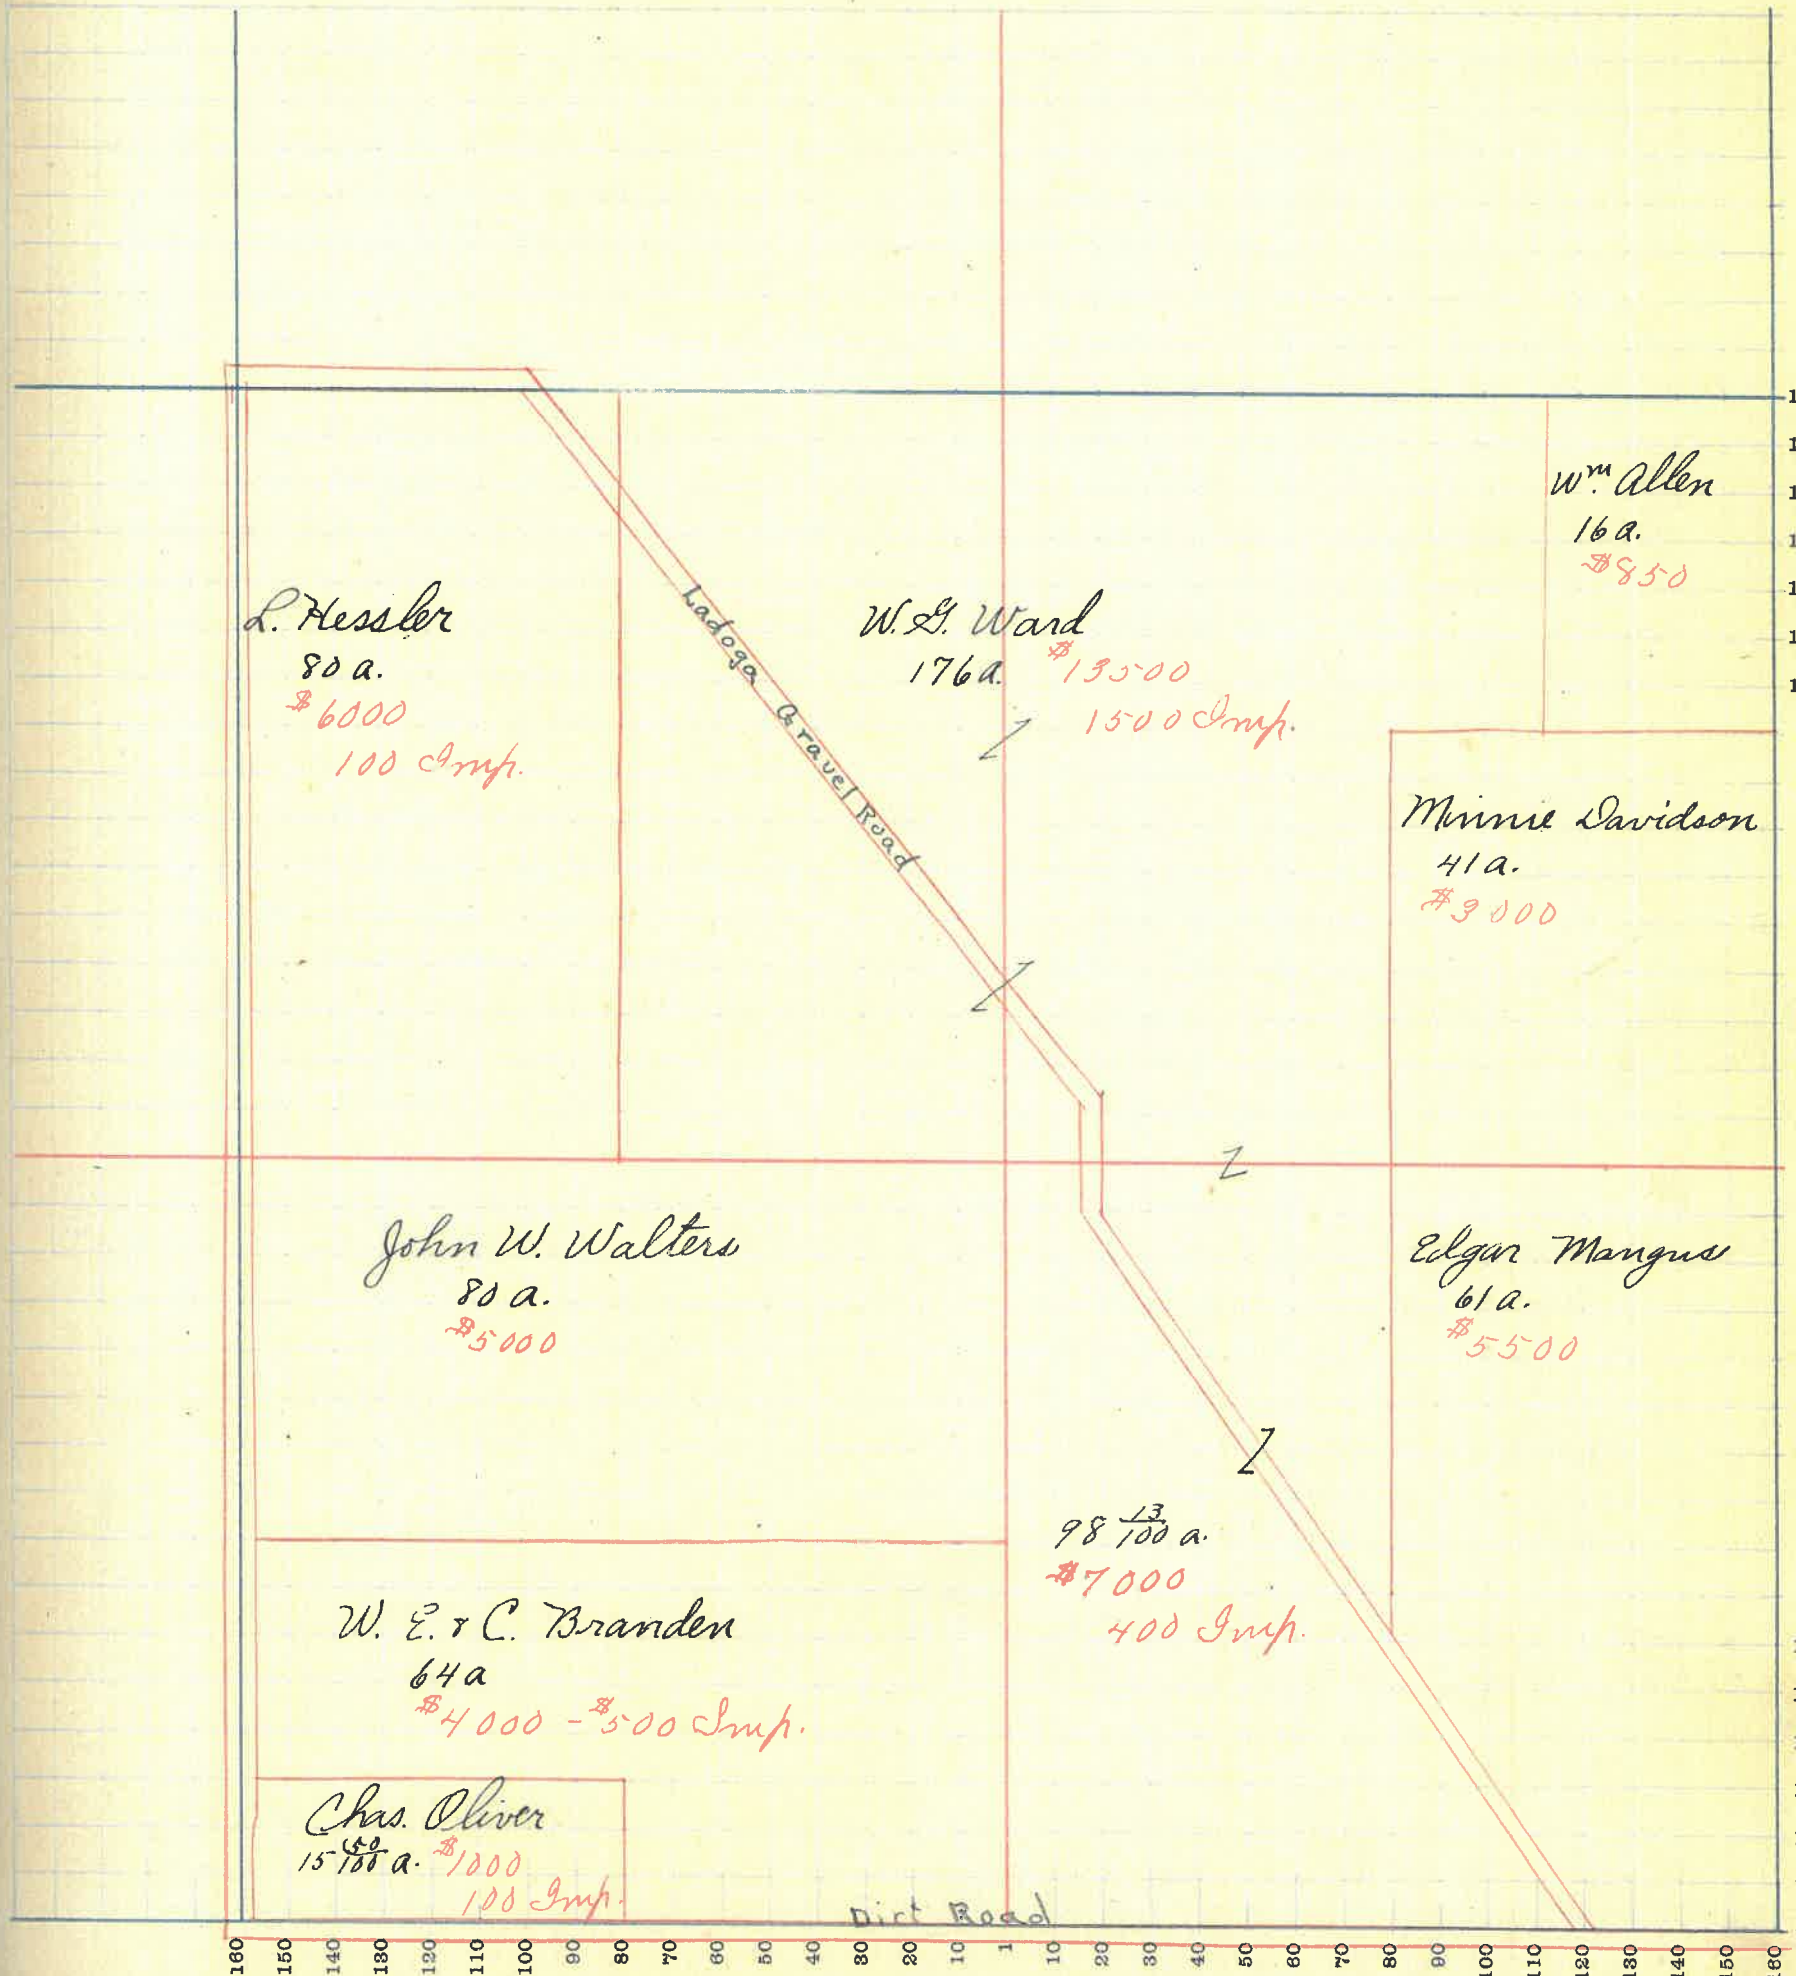 Wm. Allen
16 a.
$850
L. Hessler
80 a.
$6000
100 Imp.
Ladoga Gravel Road
W. G. Ward
176 a. $13500
1500 Imp.
Minnie Davidson
41 a.
$3000
John W. Walters
80 a.
$5000
Edgar Mangus
61 a.
$5500
98 13/100 a.
$7000
400 Imp.
W. E. & C. Branden
64 a
$4000 - $500 Imp.
Chas. Oliver
15 50/100 a. $1000
100 Imp.
Dirt Road
160 150 140 130 120 110 100 90 80 70 60 50 40 30 20 10 1 10 20 30 40 50 60 70 80 90 100 110 120 130 140 150 160